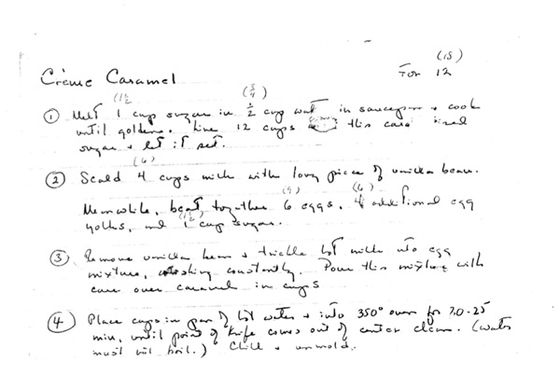 (18)
Crème Caramel For 12
(1½) (¾)
① Melt 1 cup sugar in ½ cup water in saucepan + cook
until golden. Line 12 cups this caramelized
sugar + let it set.
(6)
② Scald 4 cups milk with long piece of vanilla bean.
(9) (6)
Meanwhile, beat together 6 eggs, 4 additional egg
(1½)
yolks, and 1 cup sugar.
③ Remove vanilla bean + trickle hot milk into egg
mixture, constantly. Pour this mixture with
care over caramel in cups
④ Place cups in pan of hot water + into 350° oven for 20-25
min, until point of knife comes out of center clean. (water
must not boil.) Chill + unmold.